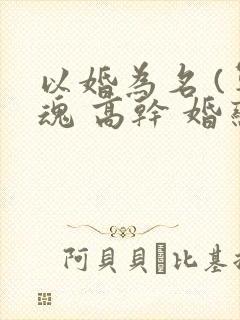 以婚為名(
魂 高幹 婚
阿貝貝 比基